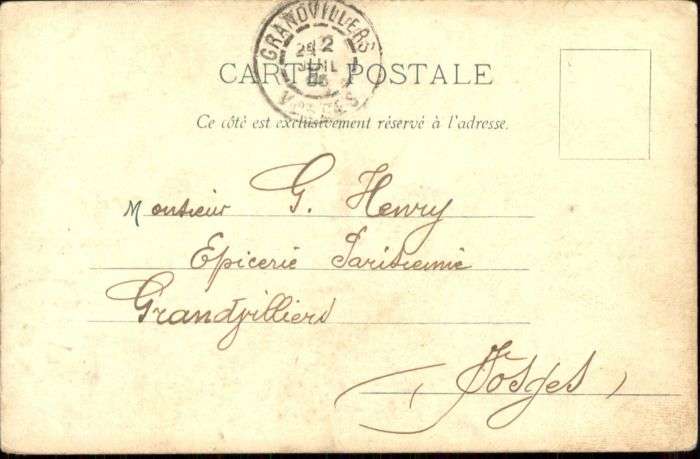 GRANDVILLERS
2
25
JUIL
VOSGES
CARTE POSTALE
Ce côté est exclusivement réservé à l'adresse.
Monsieur G. Henry
Epicerie Parisienne
Grandvilliers
(Vosges)